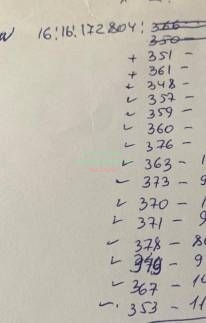 16:16:172804: 366 -
350 -
+ 351 -
+ 361 -
+ 348 -
✓ 357 -
✓ 359 -
✓ 360 -
✓ 376 -
✓ 363 - 1
✓ 373 - 9
✓ 370 - 1
✓ 371 - 9
✓ 378 - 8
✓ 379 - 9
✓ 367 - 1
✓ 353 - 11